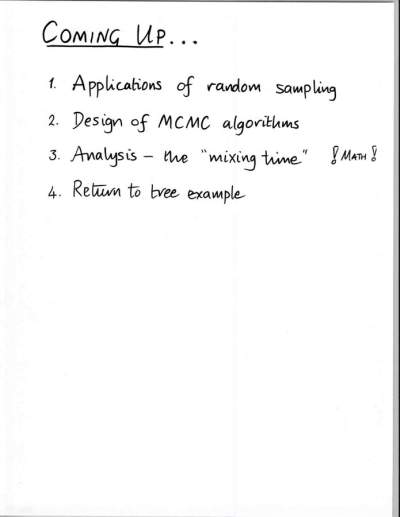 COMING UP...
1. Applications of random sampling
2. Design of MCMC algorithms
3. Analysis – the "mixing time" ! MATH !
4. Return to tree example